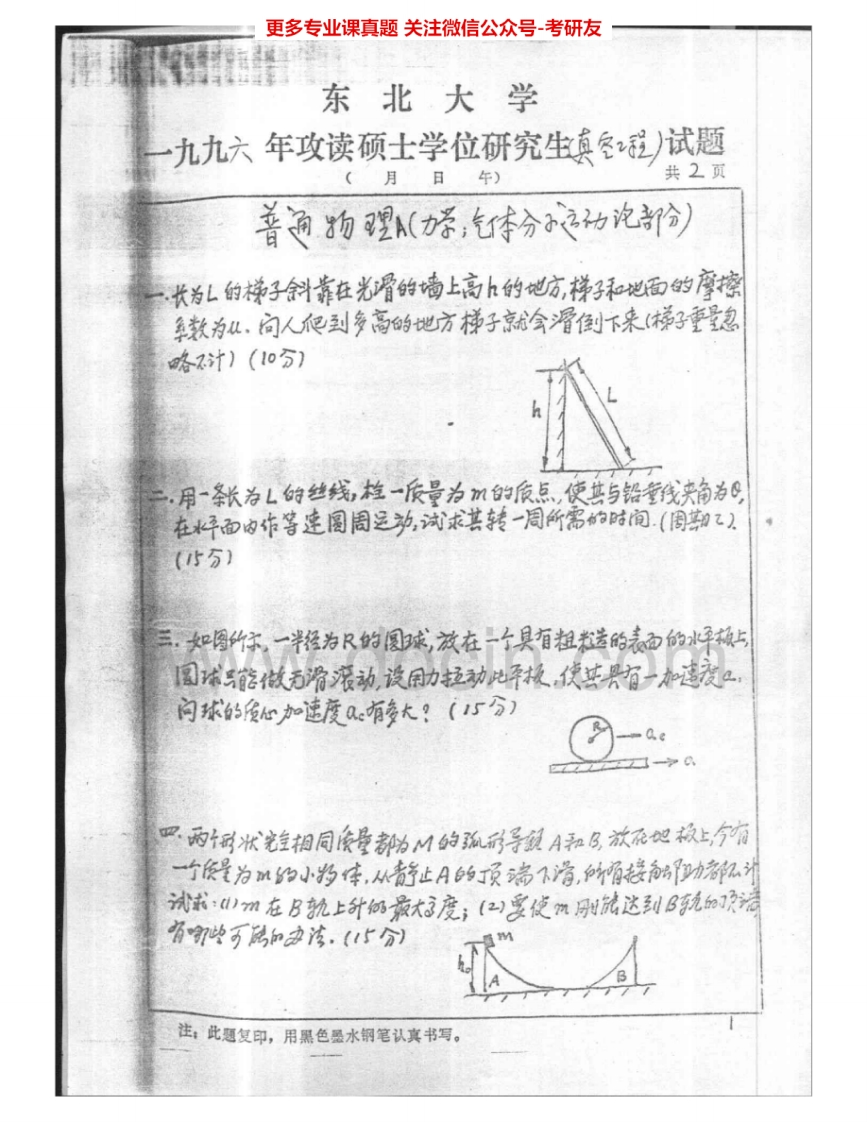 更多专业课真题 关注微信公众号-考研友
东北大学
一九九六 年攻读硕士学位研究生(真空工程)试题
( 月 日 午) 共2页
普通物理A(力学;气体分子运动论部分)
一.长为L的梯子斜靠在光滑的墙上高h的地方,梯子和地面的摩擦
系数为u.问人爬到多高的地方梯子就会滑倒下来(梯子重量忽
略不计)(10分)
h
L
二.用一条长为L的丝线,栓一质量为m的质点,使其与铅垂线夹角为θ,
在水平面内作等速圆周运动,试求其转一周所需的时间.(周期τ).
(15分)
三.如图所示,一半径为R的圆球,放在一个具有粗糙的表面的水平板上,
圆球只能做无滑滚动,设用力拉动此平板,使其具有一加速度a.
问球的质心加速度ac有多大?(15分)
R
ac
a
www.docin.com
四.两个形状完全相同质量都为M的弧形导轨A和B,放在地板上,今有
一个质量为m的小物体,从静止A的顶端下滑,所有接触阻力都不计
试求:(1)m在B轨上升的最大高度;(2)要使m刚能达到B轨的顶端
有哪些可能的办法.(15分)
m
h₀
A
B
注:此题复印,用黑色墨水钢笔认真书写。
1